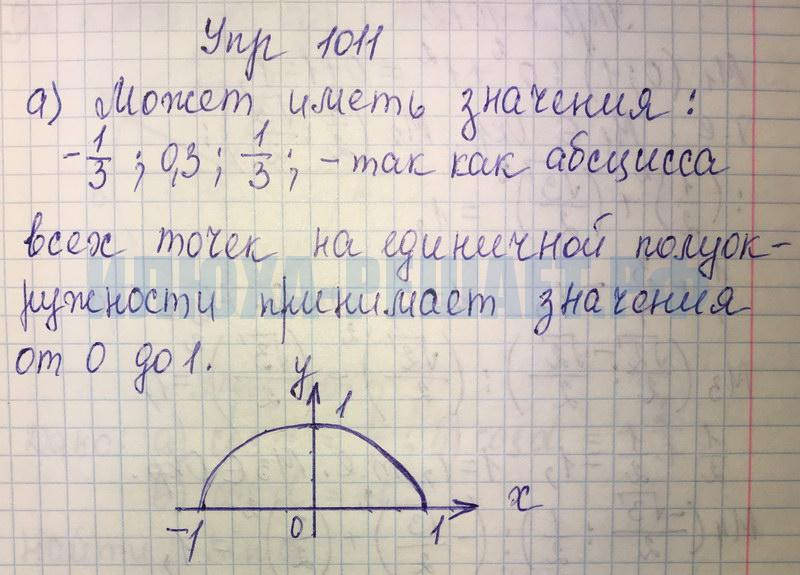 Упр 1011
а) Может иметь значения:
-1/3 ; 0,3 ; 1/3 ; - так как абсцисса
всех точек на единичной полуок-
ружности принимает значения
от 0 до 1.
у
1
-1 0 1 х